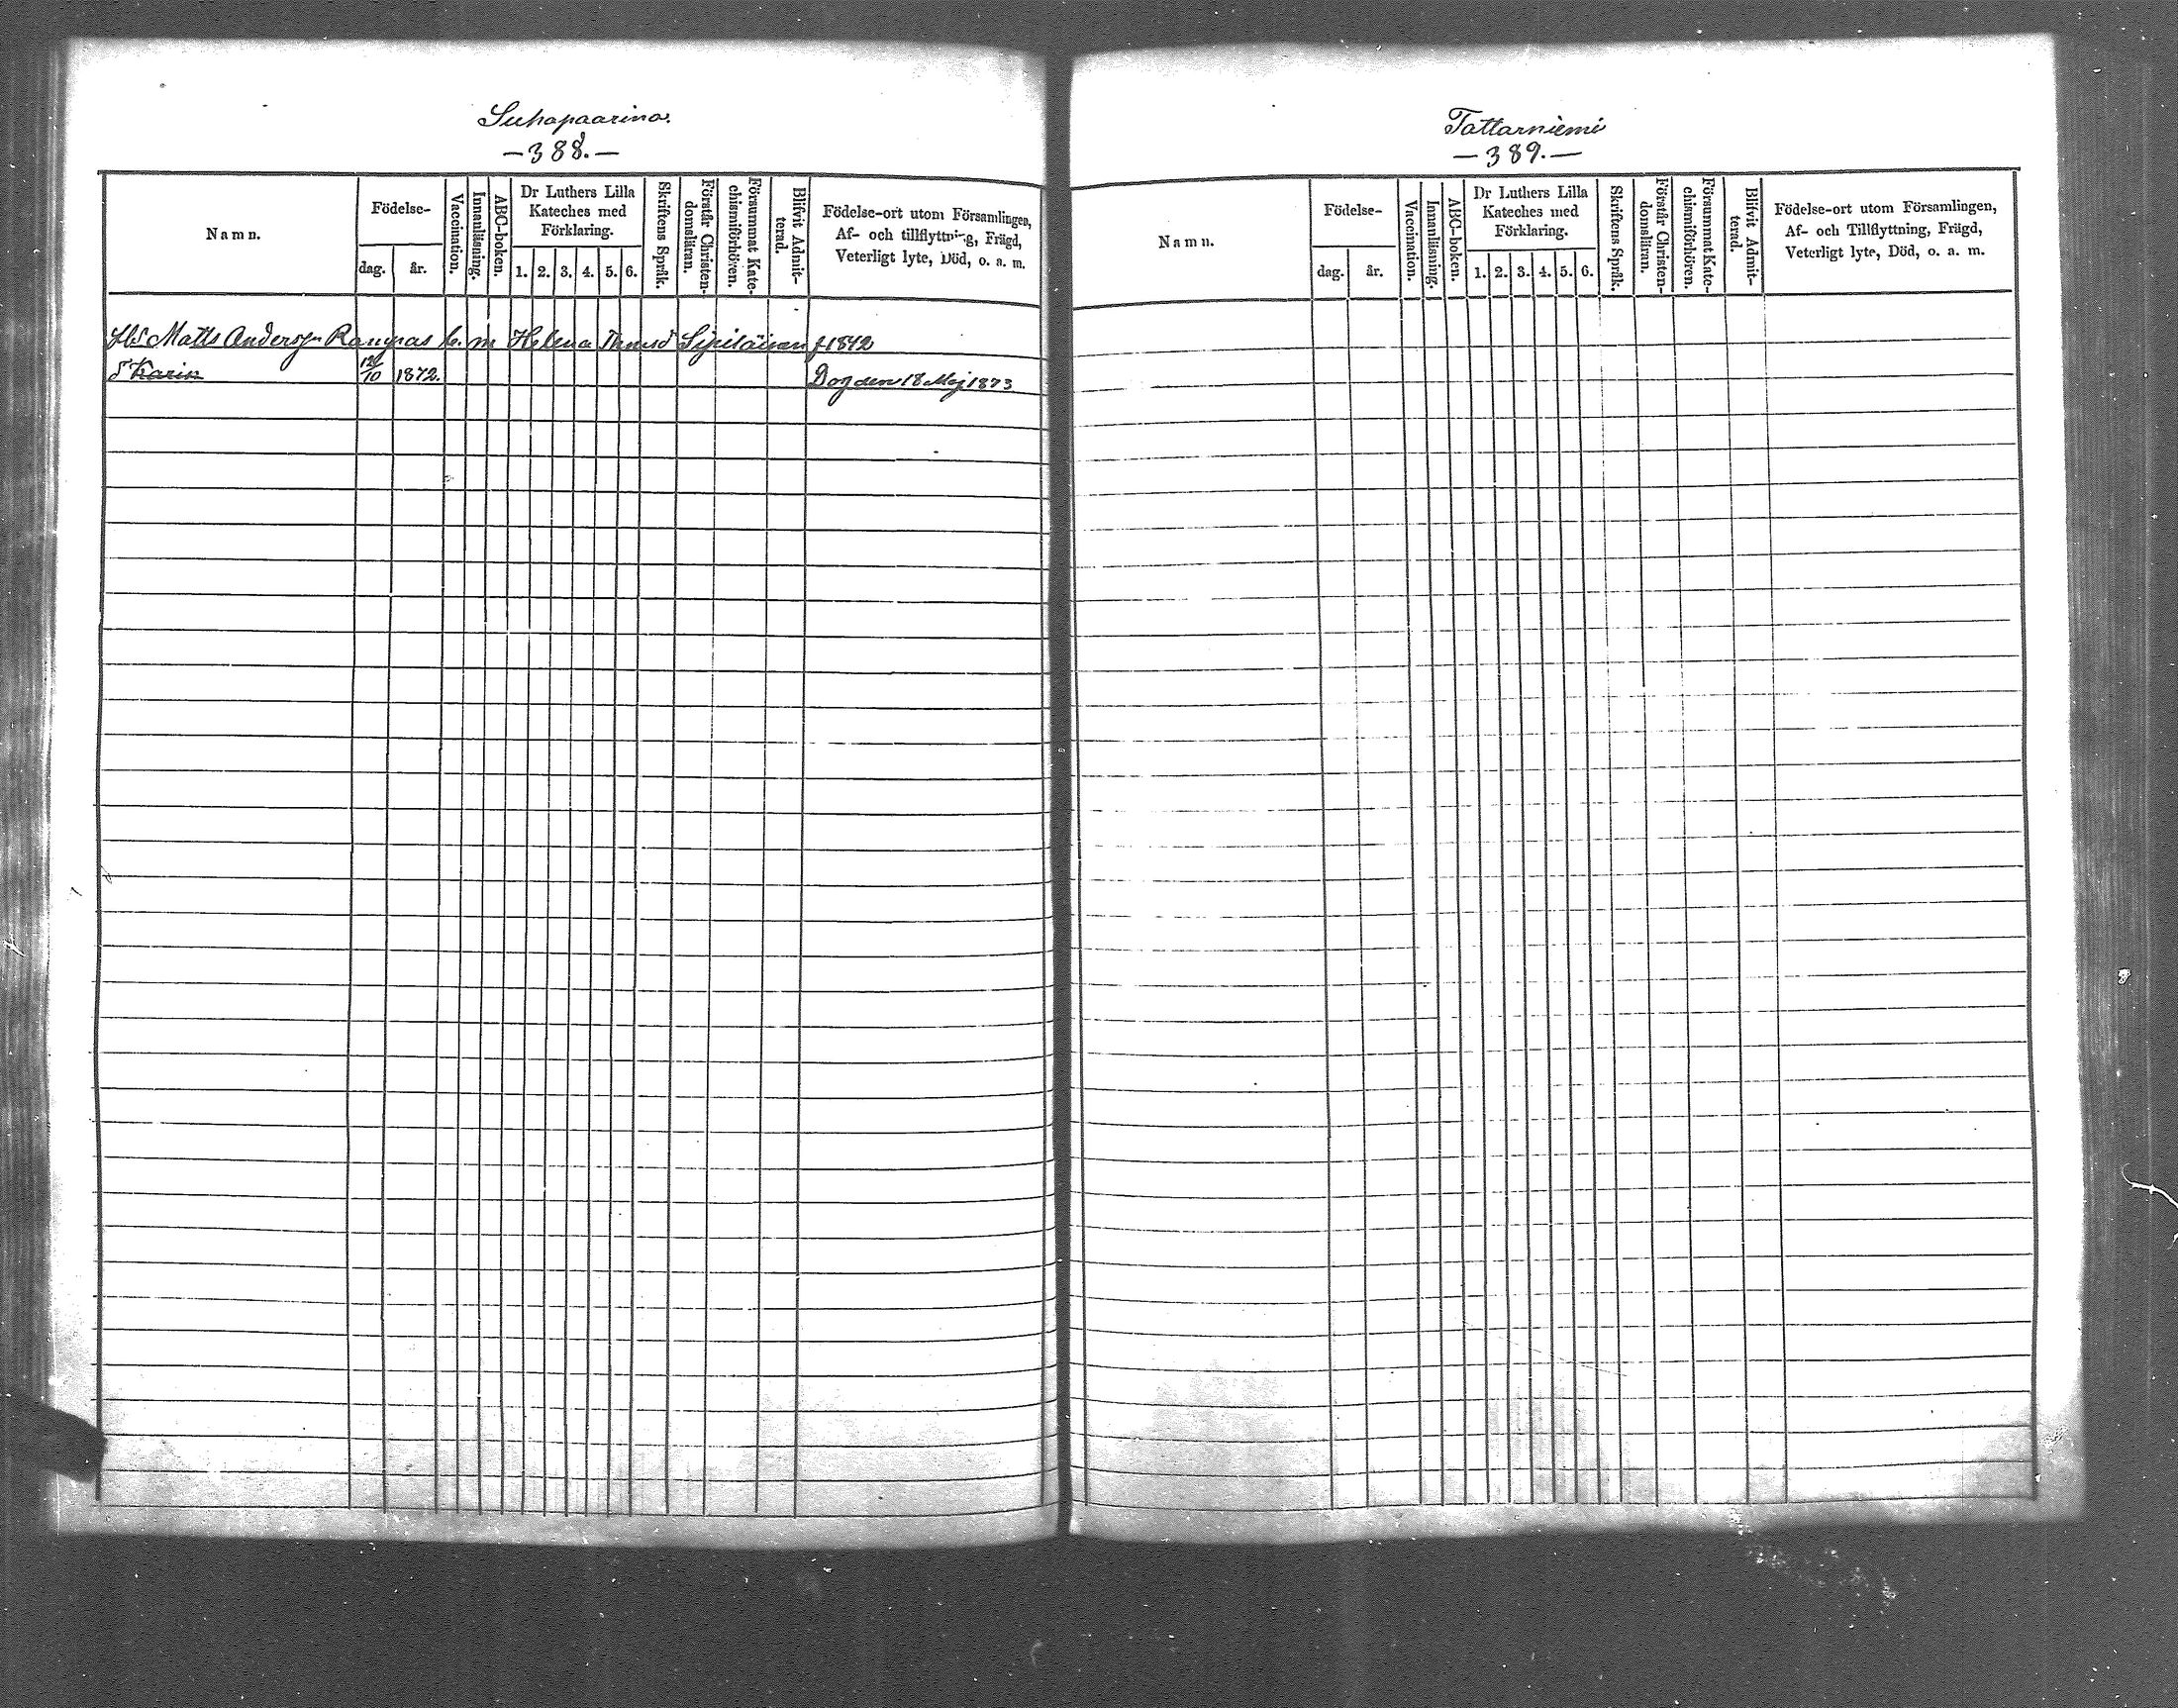 Suhapaarina.
— 388. —
Namn.
Födelse-
dag.
år.
Vaccination.
Innanläsning.
ABC-boken.
Dr Luthers Lilla
Kateches med
Förklaring.
1. 2. 3. 4. 5. 6.
Skriftens Språk.
Förstår Christen-
domsläran.
Försummat Kate-
chismiförhören.
Blifvit Admit-
terad.
Födelse-ort utom Församlingen,
Af- och tillflyttning, Frägd,
Veterligt lyte, Död, o. a. m.
Matts Andersson Rampas m Helena Sipiläinen f 1842
T Karin 12/10 1872. Dog den 18 Maj 1873
Tattarniemi
— 389. —
Namn.
Födelse-
dag.
år.
Vaccination.
Innanläsning.
ABC-boken.
Dr Luthers Lilla
Kateches med
Förklaring.
1. 2. 3. 4. 5. 6.
Skriftens Språk.
Förstår Christen-
domsläran.
Försummat Kate-
chismiförhören.
Blifvit Admit-
terad.
Födelse-ort utom Församlingen,
Af- och Tillflyttning, Frägd,
Veterligt lyte, Död, o. a. m.